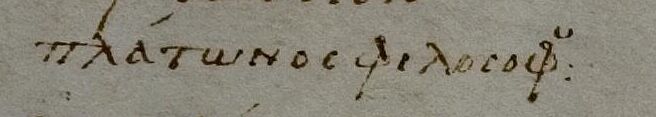 πλάτωνος φιλοσόφου: